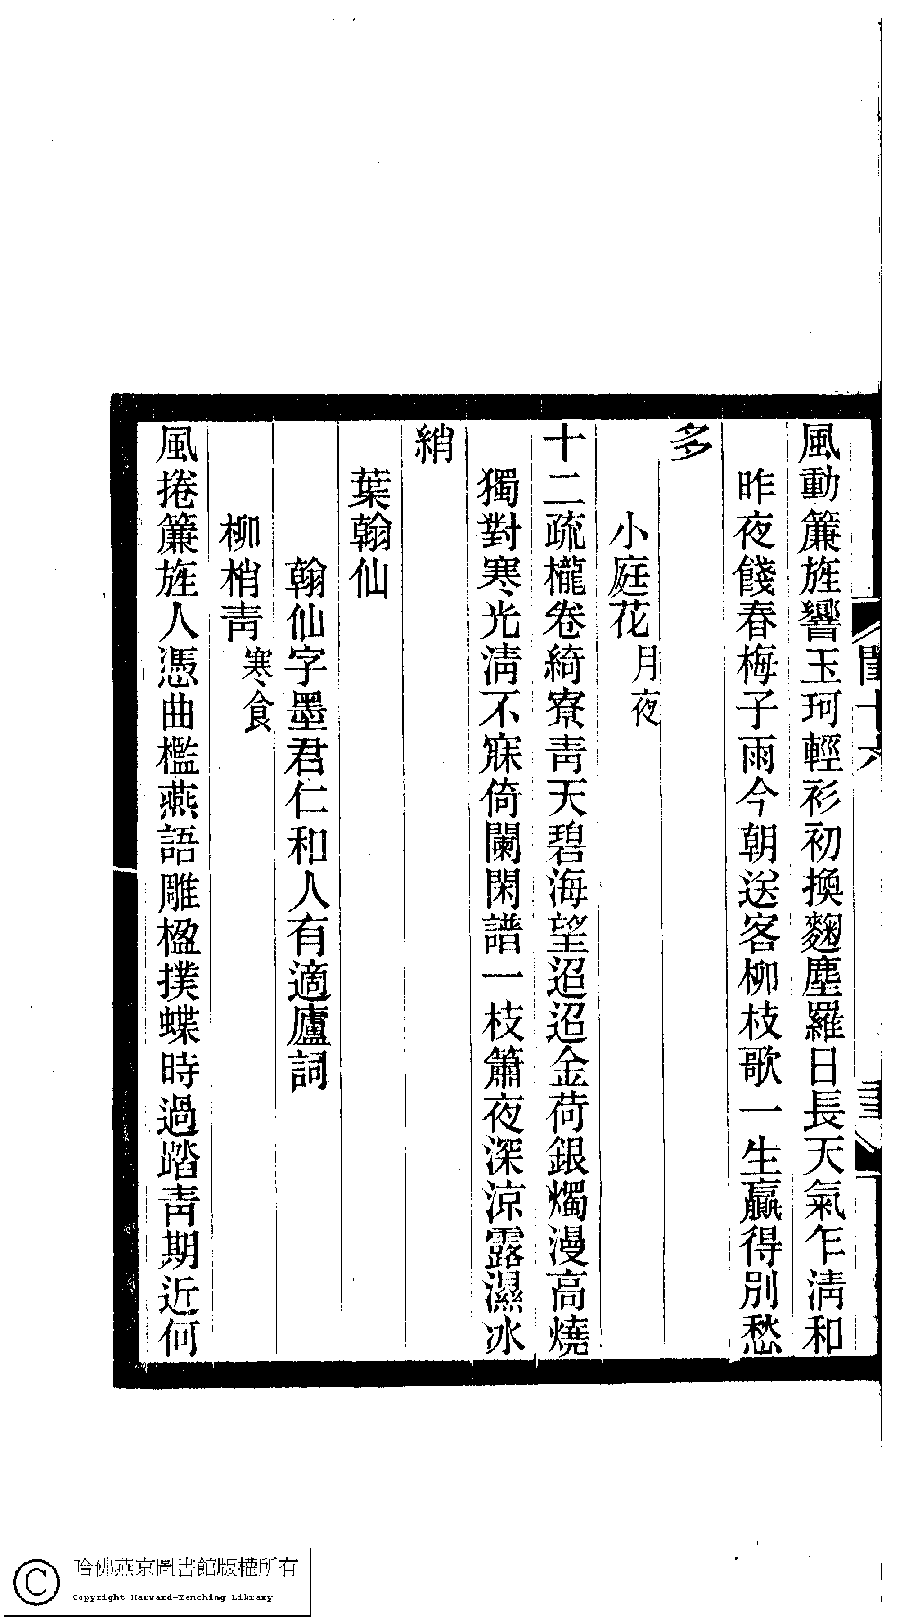 風動簾旌響玉珂輕衫初換麴塵羅日長天氣乍淸和
昨夜餞春梅子雨今朝送客柳枝歌一生贏得別愁
多
小庭花月夜
十二疏櫳卷綺寮靑天碧海望迢迢金荷銀燭漫高燒
獨對寒光淸不寐倚闌閑譜一枝簫夜深涼露濕冰
綃
葉翰仙
翰仙字墨君仁和人有適廬詞
柳梢靑寒食
風捲簾旌人憑曲檻燕語雕楹撲蝶時過踏靑期近何
哈佛燕京圖書館版權所有
Copyright Harvard-Yenching Library